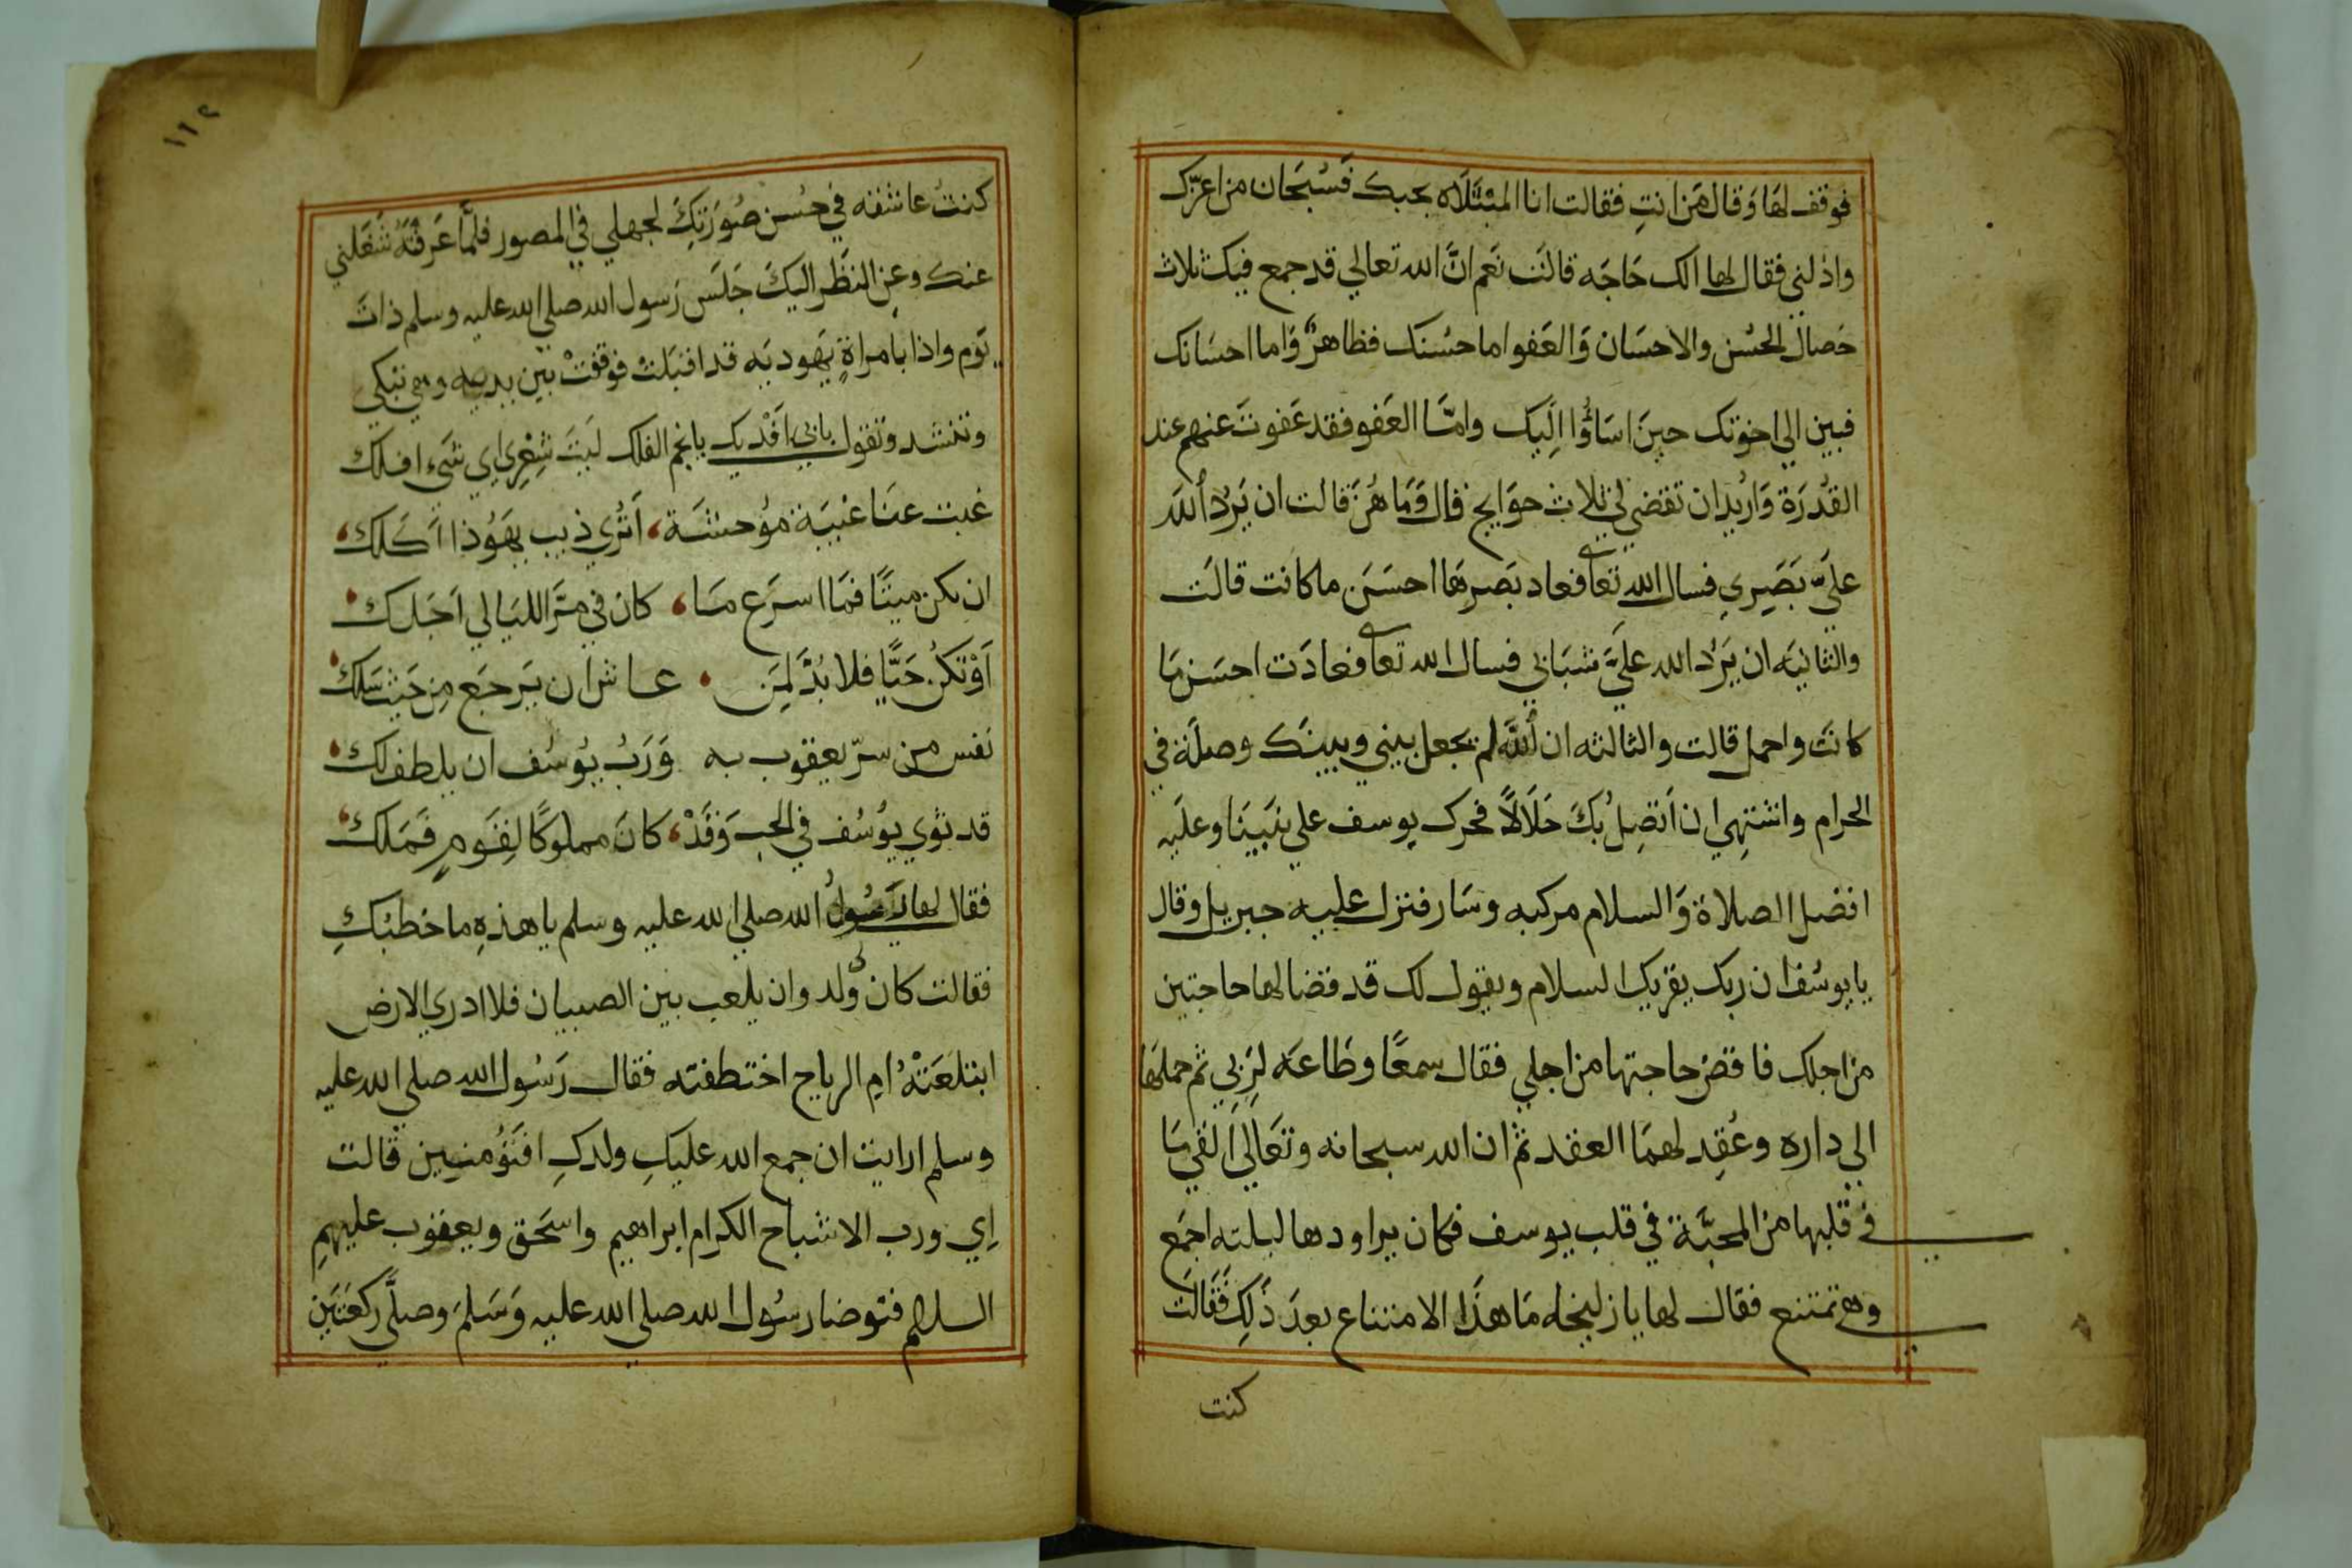 فوقف لهَا وَقال مَن انتِ فقالت انا المبْتَلَاه بحبك فَسُبحَان من اعزّك
واذلني فقال لها الك حَاجَه قالَت نَعَم انَّ الله تعالي قد جمع فيك ثلاث
خصال الحُسْن والاحسَان وَالعَفو اما حسُنك فظاهرٌ وَاما احسَانك
فبين الي اخوتك حينَ اسَاؤُا الَيك وامّا العَفو فقد عَفوتَ عنهم عند
القُدرَة وَاريُد ان تقضي لي ثلاث حوَايج قال وَمَا هُنَّ قالت ان يَرُد الله
عليَّ بَصَري فسال الله تعا فعاد بَصرهَا احسَن ما كانت قالَت
والثانيَه ان يَرُد الله عليَّ شبَابي فسال الله تعا فعادَت احسَن مَا
كانَت واجمل قالت والثالثه ان الله لم يجعل بيني وبينَك وصلَة في
الحرام واشتهِي ان اَتصِلُ بكَ حَلَالاً فحرك يوسف علي نبَينَا وعليَه
افضل الصلاة وَالسلام مركبه وسَار فنزل عليه جبريل وقال
يا يوسُف ان ربك يقريك السلام ويقول لك قد قضا لها حاجتين
من اجلك فاقض حاجتها من اجلي فقال سمعًا وطَاعَه لرَبي ثم حملهَا
الي داره وعُقِد لهمَا العقد ثم ان الله سبحانه وتعَالَى القي مَا
في قلبها من المحبَّة في قلب يوسف فكان يراودها ليلته اجمَع
وهي تمتنع فقال لها يا زليخا مَا هذَا الامتناع بعدَ ذَلِك فَقَالَت
كنت
١١٢
كنتُ عاشقه في حُسن صُورَتكَ لجهلي في المصور فلمَّا عَرفتُهُ شَغَلني
عنك وعن النظَر اليكَ جَلَس رَسول الله صلي الله عليه وسلم ذاتَ
يَوم واذا بامراةٍ يَهوديَه قد اقبَلتْ فوقفتْ بين يديه وهي تبكي
وتنشد وتقول بابي اَفْديك يا نجم الفلك لَيتَ شِعْرِي اي شَيء افلك
غبت عنَا غيبَة مُوحشَة، اَتُرى ذيب يهَوُذا اَكلك،
ان تكن ميتًا فمَا اسرَع مَا، كان في مَرّ الليَالي اَجَلك
اَوْتكُن حَيًّا فلا بُدَّ لمَن عاش ان يَرجَع مِن حَيث سَلك
نفس من سرّ يعقوب به وَرَبُ يوُسُف ان يلطف لك
قد ثوي يوُسُف في الجب وَقَدْ، كانَ مملوكًا لِقَومٍ فَمَلك
فقال لها رَسُولُ الله صلي الله عليه وسلم يا هذهِ ما خطبُكِ
فقالت كان لي وَلد وان يلعب بين الصبيان فلا ادري الارض
ابتلعَتْهُ امِ الرياح اختطفته فقال رَسُول الله صلي الله عليه
وسلم ارايت ان جمع الله عليكِ ولدكِ افتُؤمنين قالت
اِي ورب الاشباح الكرام ابراهيم واسحَق ويعقوب عليهمِ
السلام فتوضا رسُول الله صلي الله عليه وَسَلمَ وصلَّى ركعَتَين